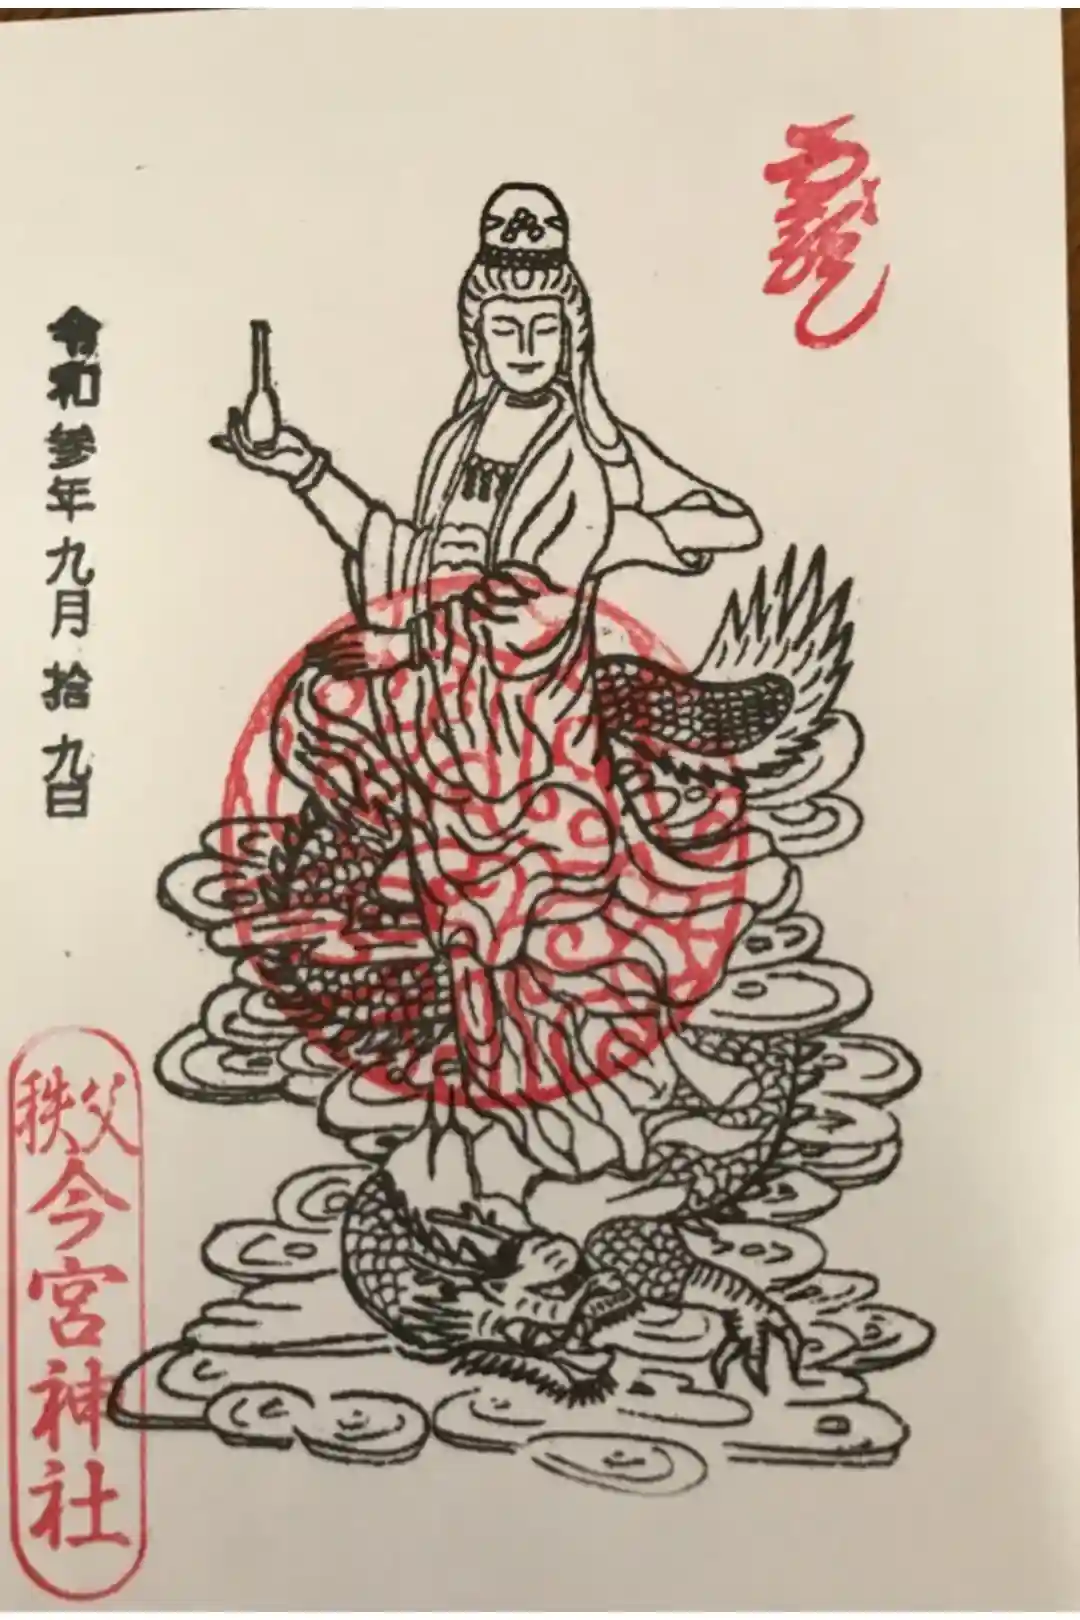 令和参年九月拾九日
秩父
今宮神社